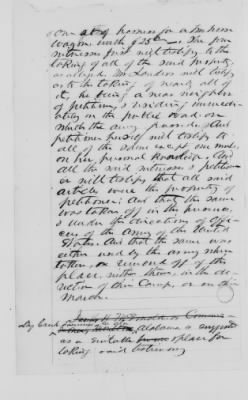 One set of harness for a two horse
wagon worth $25.00 The five
witnesses first will testify to the
taking of all of the said property
as alleged. Mr Landers will testify
as to the taking of nearly all of
it, he being a near neighbor
of petitioner, & residing immedi-
ately on the public road on
which the army passed. And
petitioner herself will testify to
all of the same except one mule,
on her personal knowledge. And
all the said witnesses & petition-
er will testify that all said
articles were the property of
petitioner; And that the same
was taken off in the presence,
& under the directions of offi-
cers of the army of the United
States. And that the same was
either used by the army when
taken, or removed off of the
place, neither shown, in the di-
rection of their Camp, or on their
March.
Alabama is suggested
as a suitable place for
taking said testimony